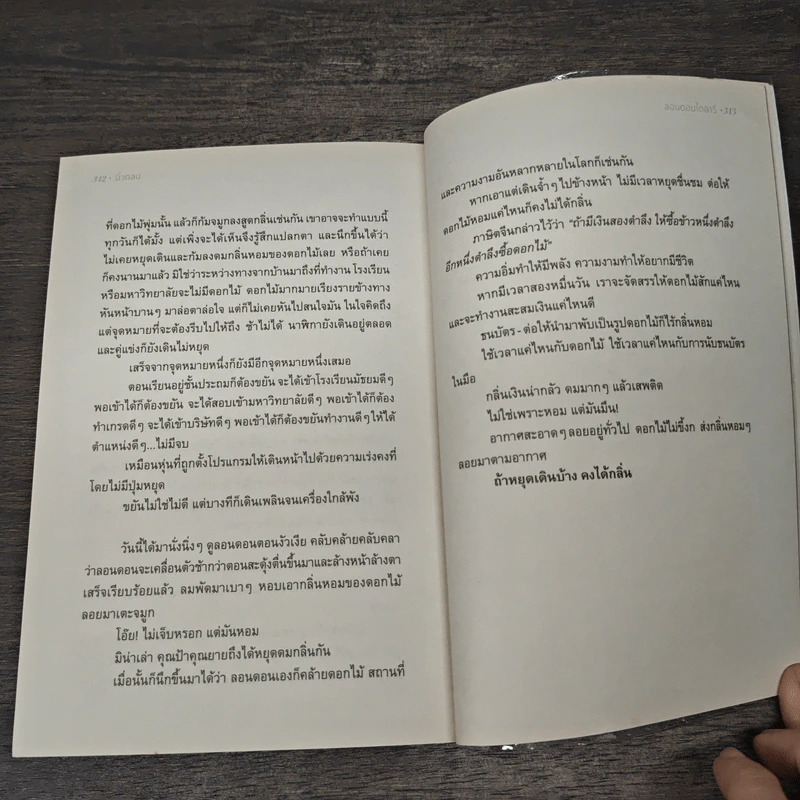 312 • นิ้วกลม
ที่ดอกไม้พุ่มนั้น แล้วก็ก้มจมูกลงสูดกลิ่นเช่นกัน เขาอาจจะทำแบบนี้
ทุกวันก็ได้มั้ง แต่เพิ่งจะได้เห็นจึงรู้สึกแปลกตา และนึกขึ้นได้ว่า
ไม่เคยหยุดเดินและก้มลงดมกลิ่นหอมของดอกไม้เลย หรือถ้าเคย
ก็คงนานมาแล้ว มิใช่ว่าระหว่างทางจากบ้านมาถึงที่ทำงาน โรงเรียน
หรือมหาวิทยาลัยจะไม่มีดอกไม้ ดอกไม้มากมายเรียงรายข้างทาง
หันหน้าบานๆ มาล่อตาล่อใจ แต่ก็ไม่เคยหันไปสนใจมัน ในใจคิดถึง
แต่จุดหมายที่จะต้องรีบไปให้ถึง ช้าไม่ได้ นาฬิกายังเดินอยู่ตลอด
และคู่แข่งก็ยังเดินไม่หยุด
เสร็จจากจุดหมายหนึ่งก็ยังมีอีกจุดหมายหนึ่งเสมอ
ตอนเรียนอยู่ชั้นประถมก็ต้องขยัน จะได้เข้าโรงเรียนมัธยมดีๆ
พอเข้าได้ก็ต้องขยัน จะได้สอบเข้ามหาวิทยาลัยดีๆ พอเข้าได้ก็ต้อง
ทำเกรดดีๆ จะได้เข้าบริษัทดีๆ พอเข้าได้ก็ต้องขยันทำงานดีๆ ให้ได้
ตำแหน่งดีๆ...ไม่มีจบ
เหมือนหุ่นที่ถูกตั้งโปรแกรมให้เดินหน้าไปด้วยความเร่งคงที่
โดยไม่มีปุ่มหยุด
ขยันไม่ใช่ไม่ดี แต่บางทีก็เดินเพลินจนเครื่องใกล้พัง
วันนี้ได้มานั่งนิ่งๆ ดูลอนดอนตอนงัวเงีย คลับคล้ายคลับคลา
ว่าลอนดอนจะเคลื่อนตัวช้ากว่าตอนสะดุ้งตื่นขึ้นมาและล้างหน้าล้างตา
เสร็จเรียบร้อยแล้ว ลมพัดมาเบาๆ หอบเอากลิ่นหอมของดอกไม้
ลอยมาเตะจมูก
โอ๊ย! ไม่เจ็บหรอก แต่มันหอม
มิน่าเล่า คุณป้าคุณยายถึงได้หยุดดมกลิ่นกัน
เมื่อนั้นก็นึกขึ้นมาได้ว่า ลอนดอนเองก็คล้ายดอกไม้ สถานที่
ลอนดอนไดอารี่ • 313
และความงามอันหลากหลายในโลกก็เช่นกัน
หากเอาแต่เดินจ้ำๆ ไปข้างหน้า ไม่มีเวลาหยุดชื่นชม ต่อให้
ดอกไม้หอมแค่ไหนก็คงไม่ได้กลิ่น
ภาษิตจีนกล่าวไว้ว่า "ถ้ามีเงินสองตำลึง ให้ซื้อข้าวหนึ่งตำลึง
อีกหนึ่งตำลึงซื้อดอกไม้"
ความอิ่มทำให้มีพลัง ความงามทำให้อยากมีชีวิต
หากมีเวลาสองหมื่นวัน เราจะจัดสรรให้ดอกไม้สักแค่ไหน
และจะทำงานสะสมเงินแค่ไหนดี
ธนบัตร - ต่อให้นำมาพับเป็นรูปดอกไม้ก็ไร้กลิ่นหอม
ใช้เวลาแค่ไหนกับดอกไม้ ใช้เวลาแค่ไหนกับการนับธนบัตร
ในมือ
กลิ่นเงินน่ากลัว ดมมากๆ แล้วเสพติด
ไม่ใช่เพราะหอม แต่มันมึน!
อากาศสะอาดๆ ลอยอยู่ทั่วไป ดอกไม้ไม่ขี้งก ส่งกลิ่นหอมๆ
ลอยมาตามอากาศ
ถ้าหยุดเดินบ้าง คงได้กลิ่น